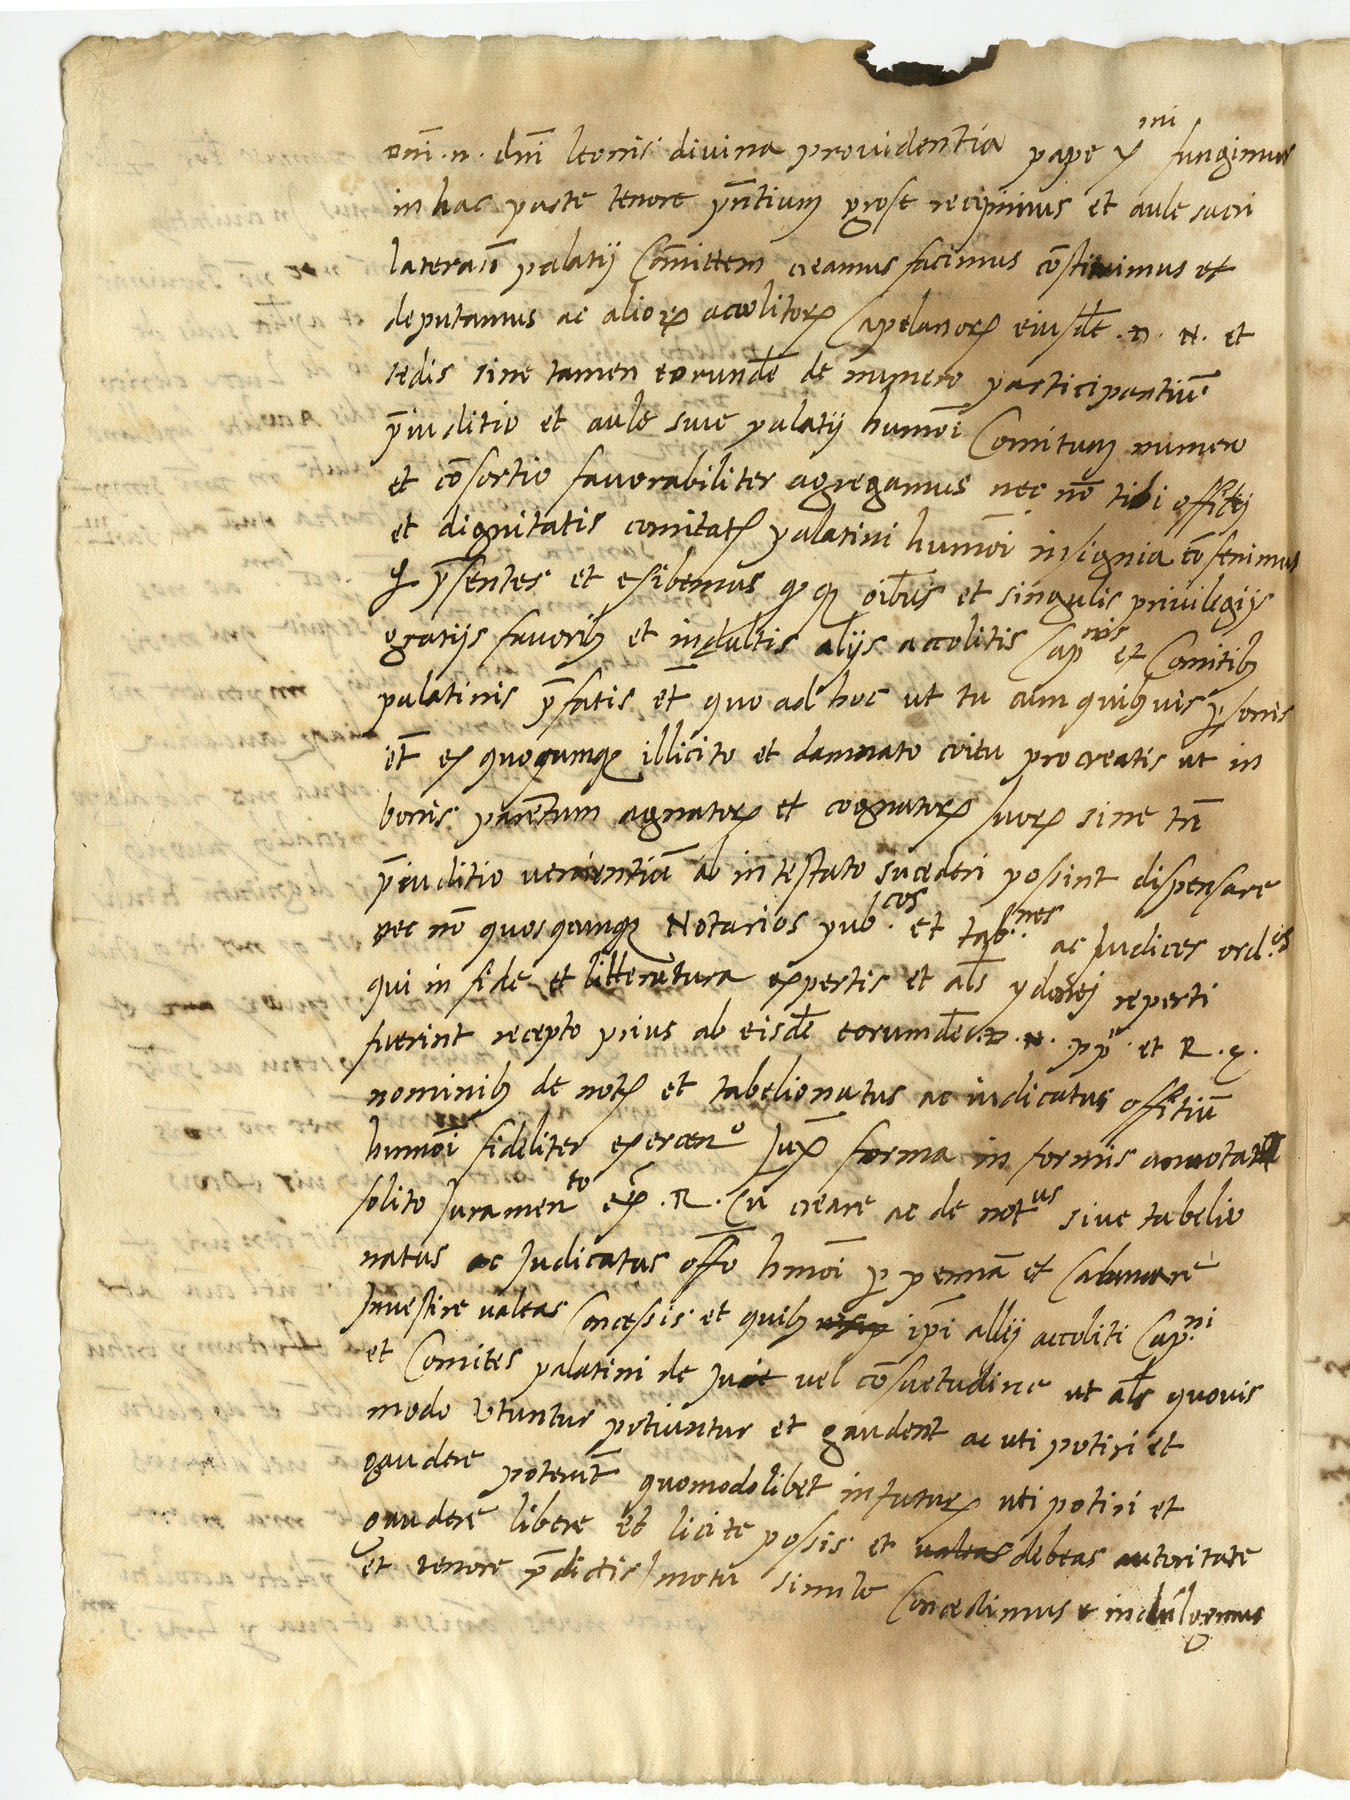 oni. n. dni leonis divina providentia pape X mi fungimur
in hac parte tenore pntium grose recipimus et aule sacri
lateran palatij Comittem creamus facimus constituimus et
deputamus ac aliorum accolitorum Capelanorum eiusde .D. N. et
sedis sine tamen eorunde de numero participantiu
piuditio et aule sive palatij humoi Comitum numero
et consortio favorabiliter agregamus nec no tibi offitij
et dignitatis comitatus palatini humoi insignia conferimus
psentes et exibemus q oibus et singulis privilegijs
gratijs favorib et indultis alijs accolitis Cap nis et Comitib
palatinis pfatis et quo ad hoc ut tu cum quibusvis psonis
et ex quoqumque illicito et damnato coitu procreatis ut in
bonis parentum agnatorum et cognatorum suorum sine tn
piuditio venientiu ab intestato sucederi possint dispensare
nec no quosqumque Notarios pub.cos et tab.nes ac Judices ord.os
qui in fide et litteratura expertis et als ydonej reperti
fuerint recepto prius ab eisde eorumde .D. N. pp. et R. E.
nominib de not et tabelionatus ac iudicatus offitiu
humoi fideliter exercen.o Jux forma in formis annotata
solito Juramen.to ex .R. Cu creare ac de not.us sive tabelio
natus ac Judicatus offo hmoi p pennam et Calamare
Investire valeas Concessis et quib ipi allij accoliti Cap.ni
et Comites palatini de Jure vel consuetudine ut als quovis
modo Utuntur potiuntur et gaudent ac uti potiri et
gaudere poterunt quomodolibet in futurum uti potiri et
gaudere libere et licite possis et valeas debeas autoritate
et tenore pdictis motu simile Concedimus et indulgemus